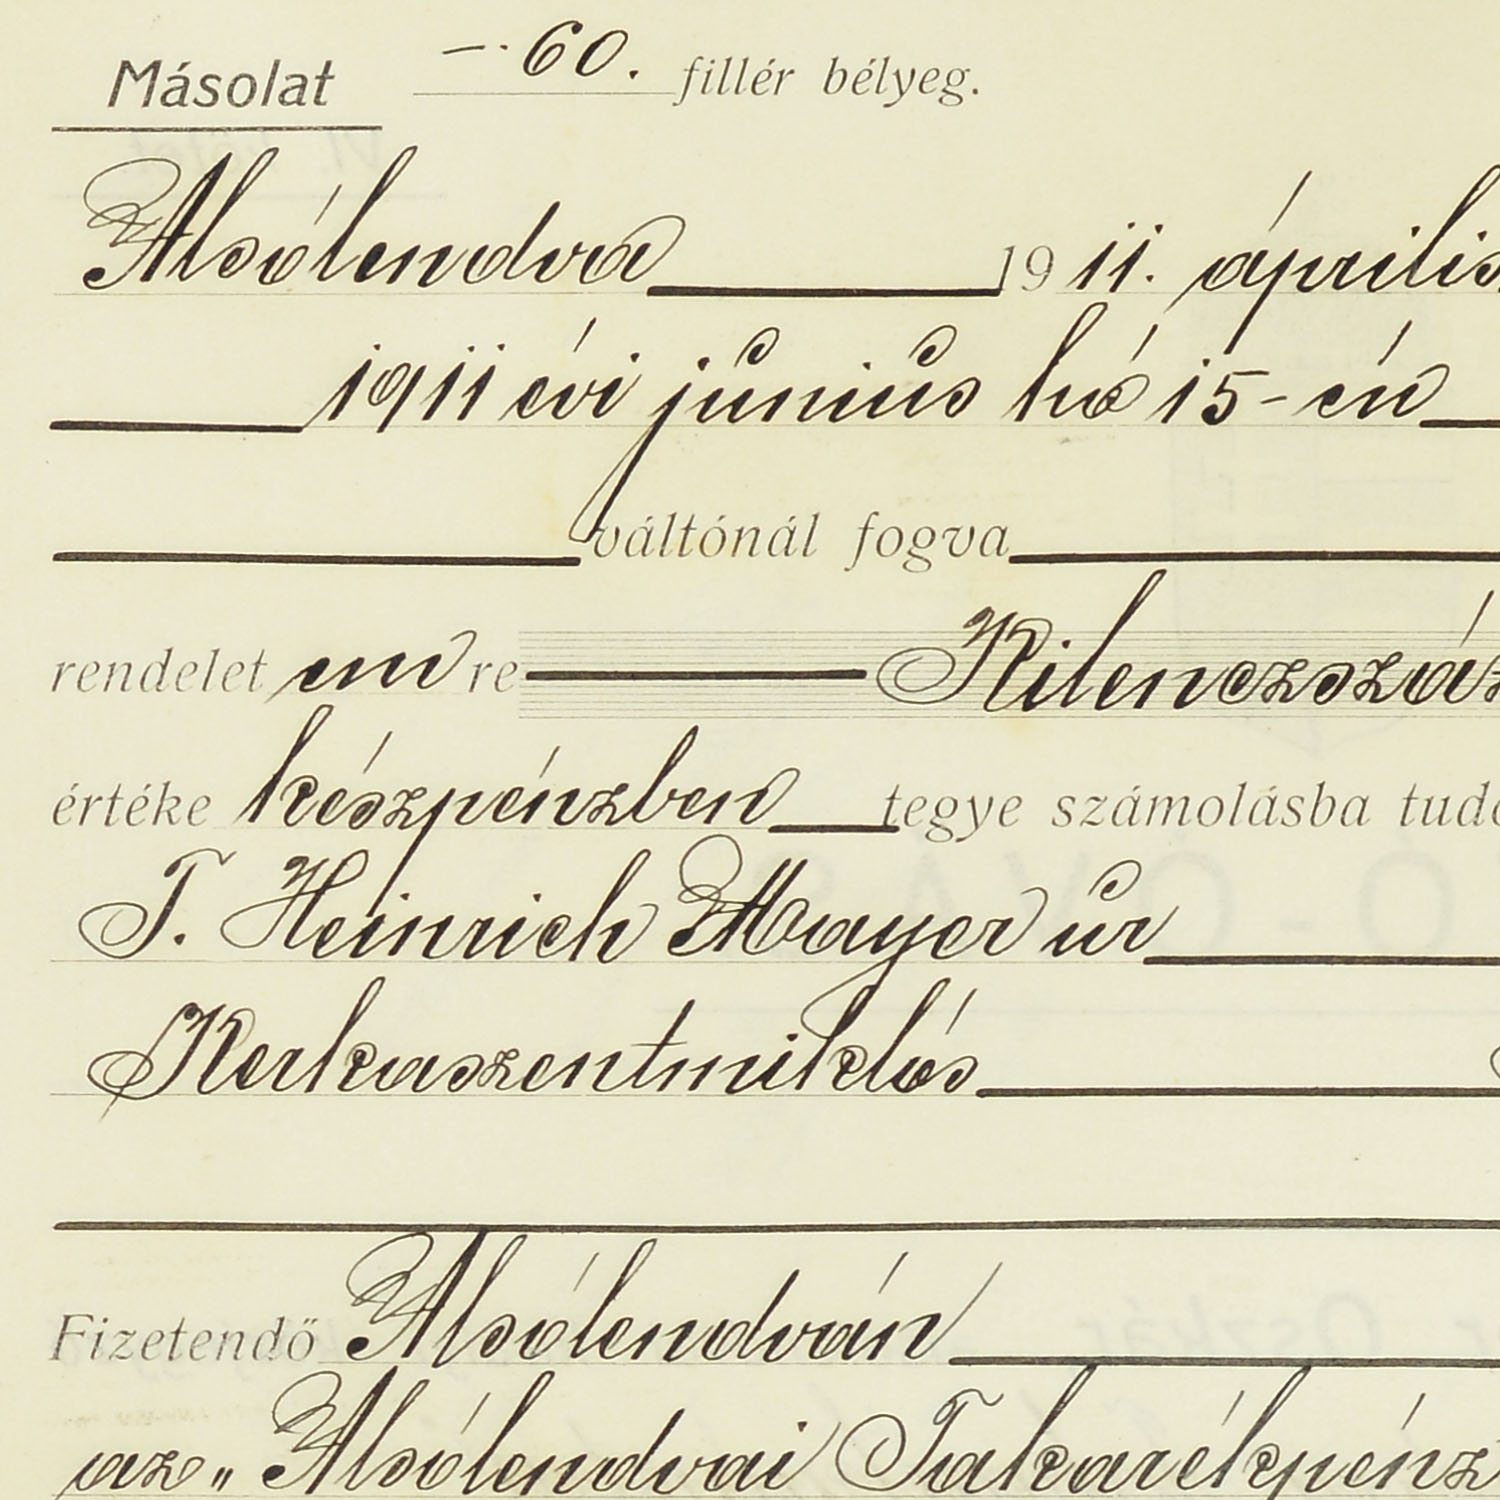 Másolat —·60. fillér bélyeg.
Alsólendva 1911. április
1911 évi június hó 15-én
váltónál fogva
rendelet en re Kilenczszáz
értéke készpénzben tegye számolásba
T. Heinrich Mayer úr
Kerkaszentmiklós
Fizetendő Alsólendván
az „Alsólendvai Takarékpénz